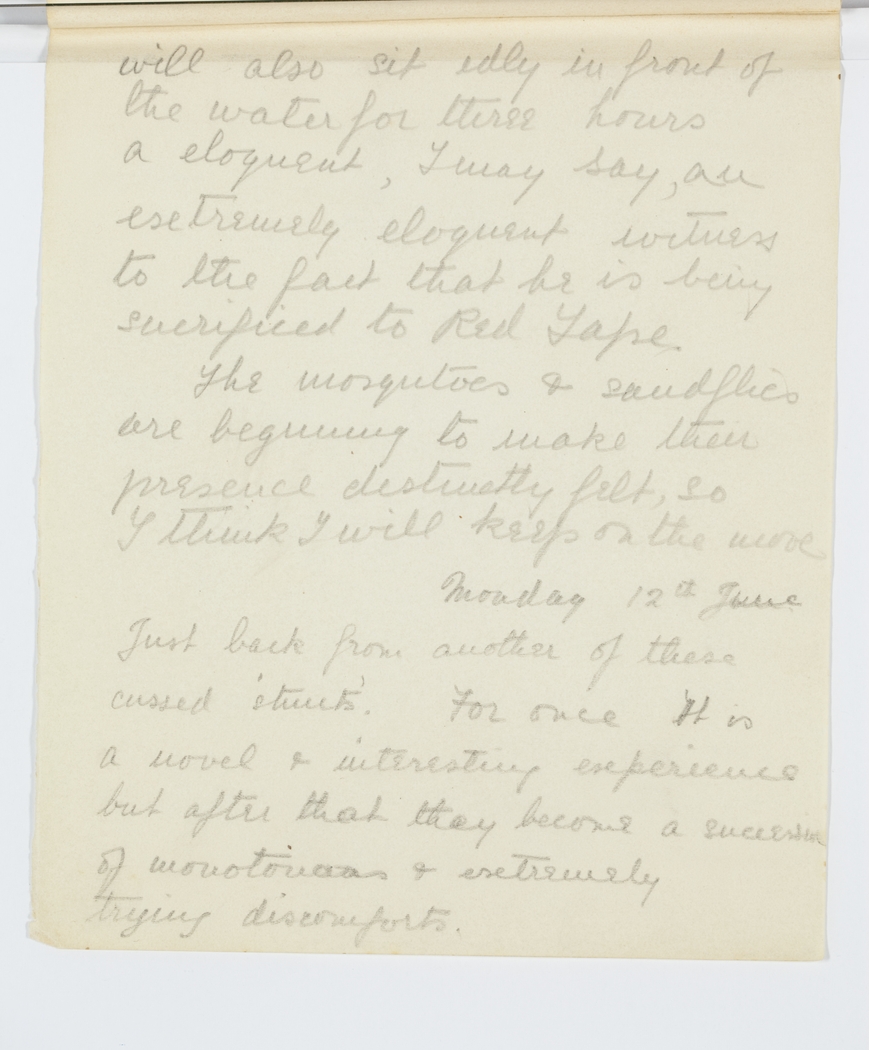 will also sit idly in front of
the water for three hours
a eloquent, I may say, an
extremely eloquent witness
to the fact that he is being
sacrificed to Red Tape.
The mosqutoes & sandflies
are beginning to make their
presence distinctly felt, so
I think I will keep on the move
Monday 12th June
Just back from another of these
cussed 'stunts'. For once it is
a novel & interesting experience
but after that they become a succession
of monotonous & extremely
trying discomforts.